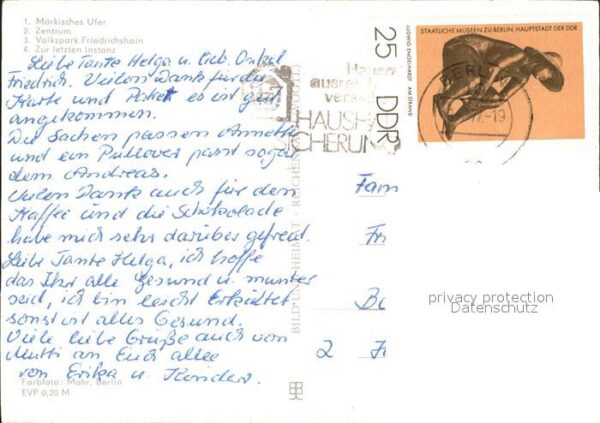 1. Märkisches Ufer
2. Zentrum
3. Volkspark Friedrichshain
4. Zur letzten Instanz
Liebe Tante Helga u. lieb. Onkel
Friedrich. Vielen Dank für die
Karte und Paket es ist gut
angekommen.
Die Sachen passen Annette
und ein Pullover passt sogar
dem Andreas.
Vielen Dank auch für den
Kaffee und die Schokolade
habe mich sehr darüber gefreut.
Liebe Tante Helga, ich hoffe
das Ihr alle Gesund u. munter
seid, ich bin leicht Erkältet
sonst ist alles Gesund.
Viele liebe Grüße auch von
Mutti an Euch alle
von Erika u. Kinder.
Farbfoto: Mohr, Berlin
EVP 0,20 M
BILD UND HEIMAT REICHENBACH
HAUSHA
SICHERUNG
BERLI
-19
25
DDR
LUDWIG ENGELHARDT AM STRAND
STAATLICHE MUSEEN ZU BERLIN, HAUPTSTADT DER DDR
Fam
Fr
Be
2 Fr
privacy protection
Datenschutz